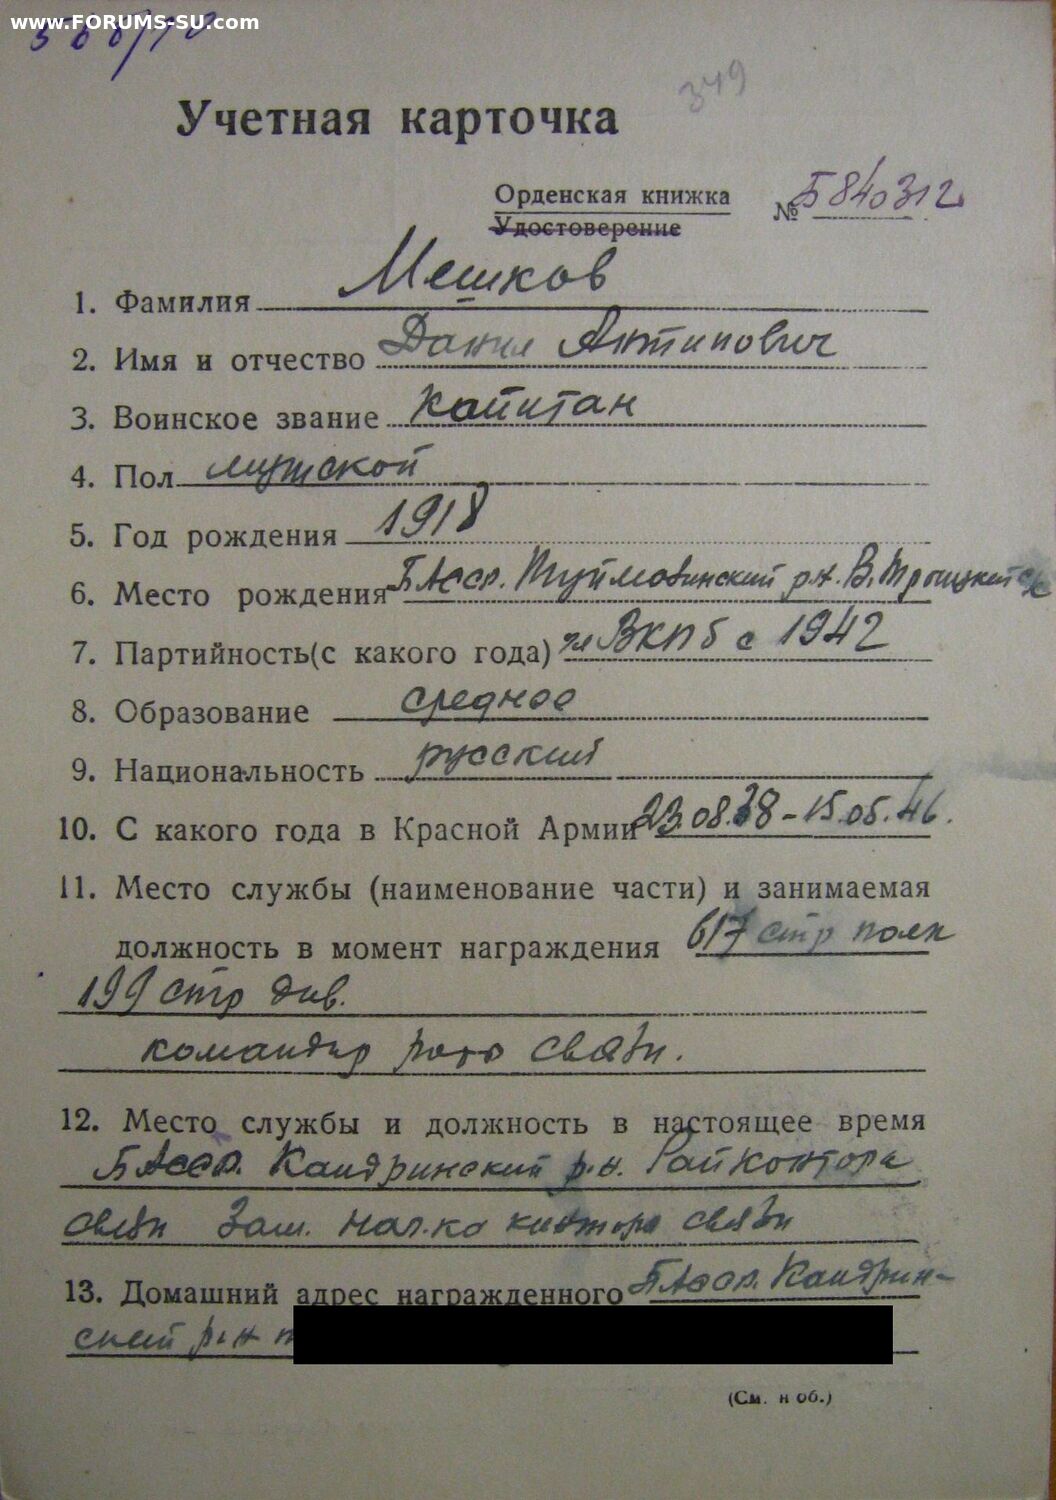 www.FORUMS-SU.com
349
Учетная карточка
Орденская книжка
Удостоверение
№ Б 840312
1. Фамилия Мешков
2. Имя и отчество Данил Антипович
3. Воинское звание капитан
4. Пол мужской
5. Год рождения 1918
6. Место рождения БАССР. Туймазинский р-н. В. Троицкий с/с
7. Партийность(с какого года) чл ВКПб с 1942
8. Образование среднее
9. Национальность русский
10. С какого года в Красной Армии 23.08.38-15.05.46.
11. Место службы (наименование части) и занимаемая
должность в момент награждения 617 стр полк
199 стр див.
командир роты связи.
12. Место службы и должность в настоящее время
БАССР. Кандринский р-н. Райконтора
связи Зам. нач-ка конторы связи
13. Домашний адрес награжденного БАССР. Кандрин-
ский р-н
(См. н об.)